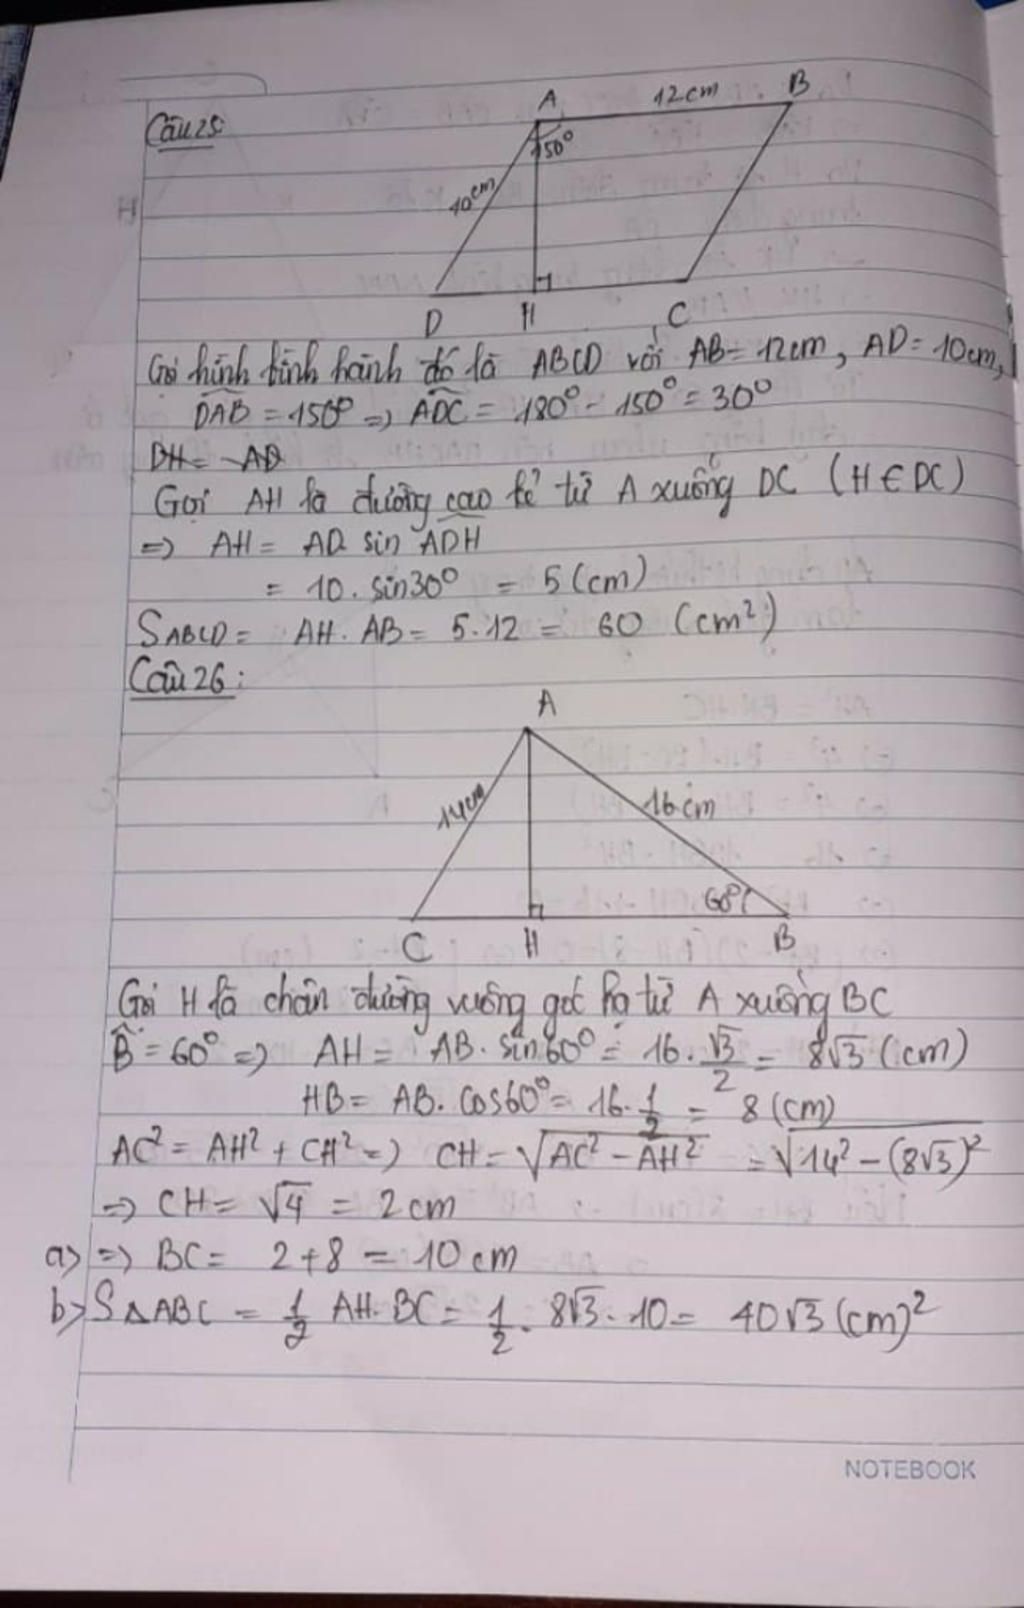 Câu 25:
A 12cm B
150°
10cm
D H C
Gọi hình bình hành đó là ABCD với AB = 12cm, AD = 10cm,
DAB = 150° => ADC = 180° - 150° = 30°
DH = AD
Gọi AH là đường cao kẻ từ A xuống DC (H ∈ DC)
=> AH = AD. sin ADH
= 10. sin30° = 5 (cm)
SABCD = AH. AB = 5.12 = 60 (cm²)
Câu 26:
A
14cm 16cm
60°
C H B
Gọi H là chân đường vuông góc hạ từ A xuống BC
B̂ = 60° => AH = AB. sin60° = 16. √3/2 = 8√3 (cm)
HB = AB. cos60° = 16. 1/2 = 8 (cm)
AC² = AH² + CH² => CH = √(AC² - AH²) = √(14² - (8√3)²)
=> CH = √4 = 2cm
a> => BC = 2+8 = 10cm
b> SΔABC = 1/2 AH. BC = 1/2. 8√3. 10 = 40√3 (cm)²
NOTEBOOK